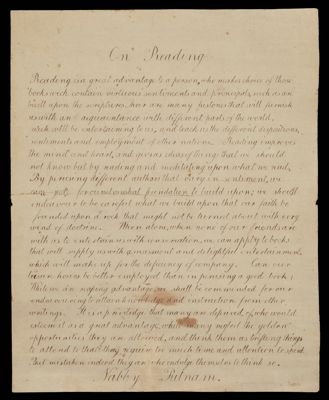 On Reading
Reading is a great advantage to a person, who makes choice of those
books wich contain virtuous sentements and principals, such as are
built upon the scriptures, there are many histories that will furnish
us with an acquaintance with different parts of the world,
wich will be entertaining to us, and teach us the different dispositions,
sentements and employment of other nations. Reading improves
the mind and heart, and gives us ideas of things that we should
not know but by reading and meditating upon what we read,
By perusing different authors that vary in sentement, we
can get, for us a substantial foundation to build upon; we should
endeavour to be careful what we build upon that our faith be
founded upon a rock that might not be turned about with every
wind of doctrine. When alone, when none of our friends are
with us to entertain us with conversation, we can apply to books
that will supply us with amusement and delightful entertainment,
which will make up for the deficiency of company. Can our
leisure hours be better employed than in perusing a good book;
While we are reaping advantage we shall be commended for our
endeavouring to attain knowledge and instruction from other
writings. It is a priviledge that many are deprived of, who would
esteem it as a great advantage, while many neglect the golden
opportunities they are allowed, and think them as trifling things
to attend to that they require too much time and attention to spend
But mistaken indeed they are who indulge themselves to think so.
Nabby Putnam.